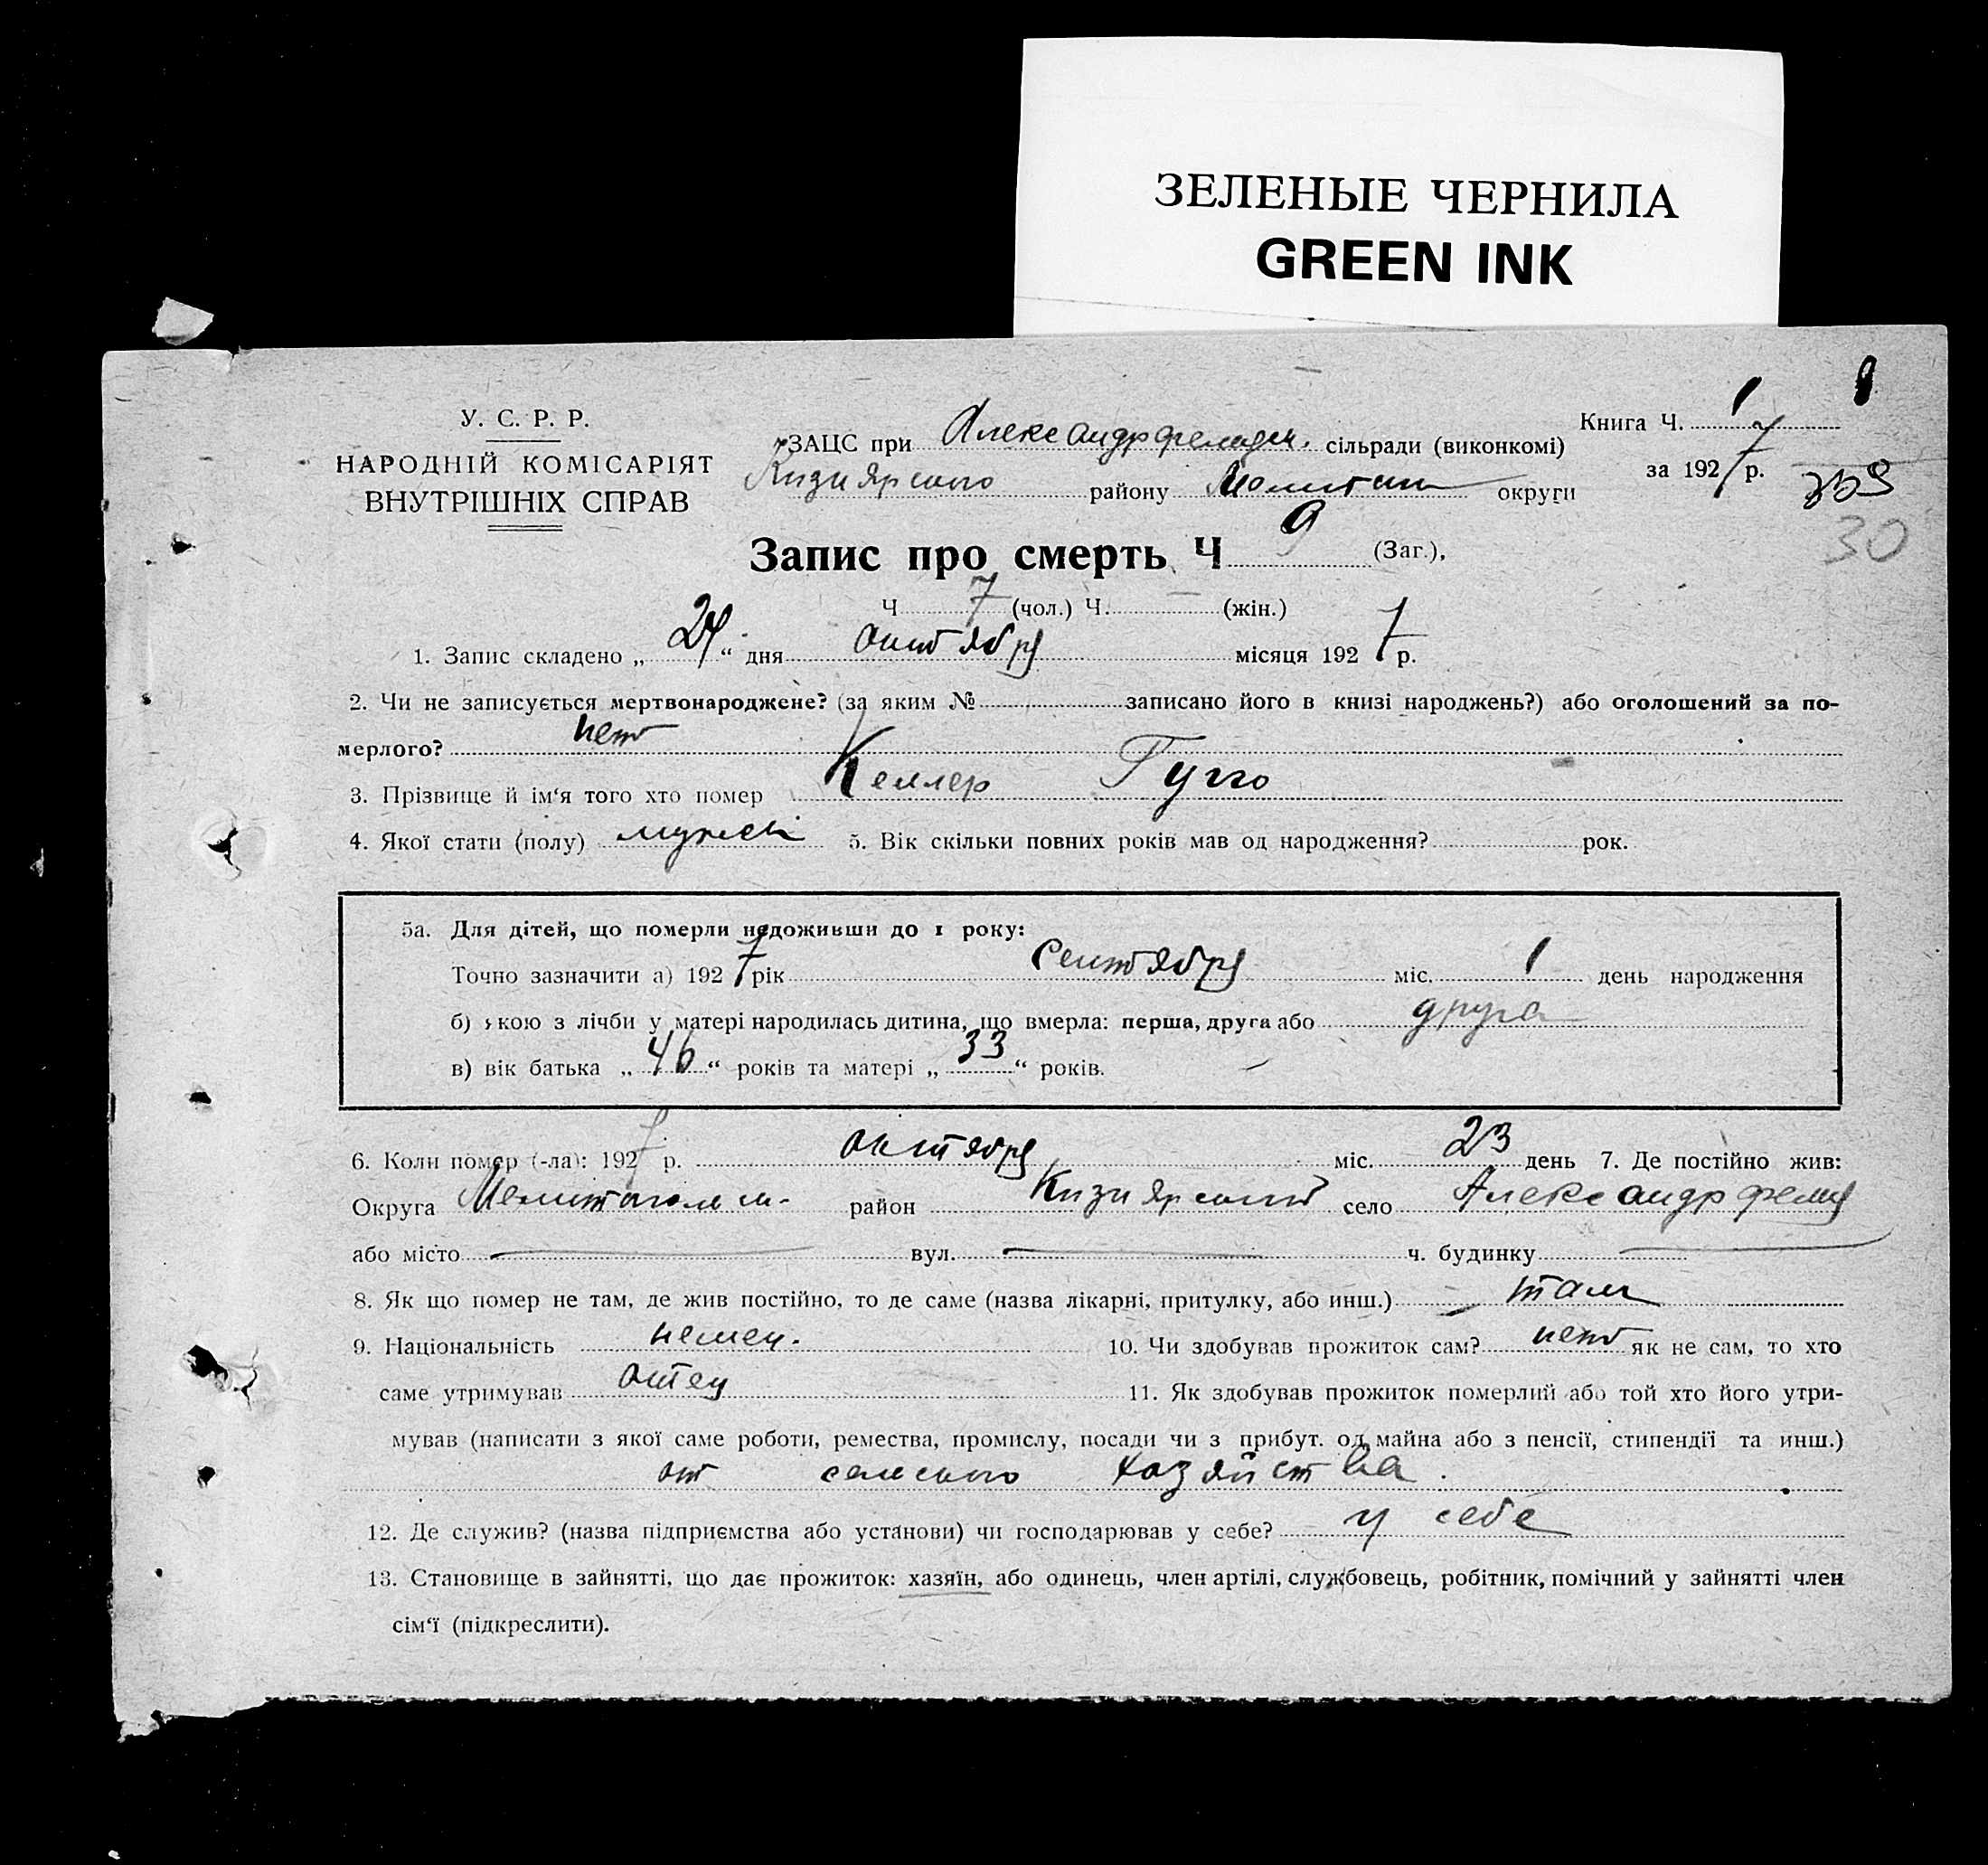 ЗЕЛЕНЫЕ ЧЕРНИЛА
GREEN INK
У. С. Р. Р.
НАРОДНІЙ КОМІСАРІЯТ
ВНУТРІШНІХ СПРАВ
ЗАЦС при Александрфельден. сільради (виконкомі)
Кизиярского району Мелитоп округи
Книга Ч. 1
за 1927 р.
30
Запис про смерть Ч 9 (Заг.),
Ч 7 (чол.) Ч. — (жін.)
1. Запис складено „24“ дня октября місяця 1927 р.
2. Чи не записується мертвонароджене? (за яким № записано його в книзі народжень?) або оголошений за по-
мерлого? нет
3. Прізвище й ім‘я того хто помер Келлер Гугго
4. Якої стати (полу) мужск 5. Вік скільки повних років мав од народження? рок.
5а. Для дітей, що померли недоживши до 1 року:
Точно зазначити а) 1927 рік сентября міс. 1 день народження
б) якою з лічби у матері народилась дитина, що вмерла: перша, друга або друга
в) вік батька „46“ років та матері „33“ років.
6. Коли помер (-ла): 1927 р. октября міс. 23 день 7. Де постійно жив:
Округа Мелитопольск. район Кизиярский село Александрфельд
або місто — вул. — ч. будинку —
8. Як що помер не там, де жив постійно, то де саме (назва лікарні, притулку, або инш.) там
9. Національність немец. 10. Чи здобував прожиток сам? нет як не сам, то хто
саме утримував отец 11. Як здобував прожиток померлий або той хто його утри-
мував (написати з якої саме роботи, ремества, промислу, посади чи з прибут. од майна або з пенсії, стипендії та инш.)
от сельского хозяйства.
12. Де служив? (назва підприємства або установи) чи господарював у себе? у себе
13. Становище в зайнятті, що дає прожиток: хазяїн, або одинець, член артілі, службовець, робітник, помічний у зайнятті член
сім‘ї (підкреслити).